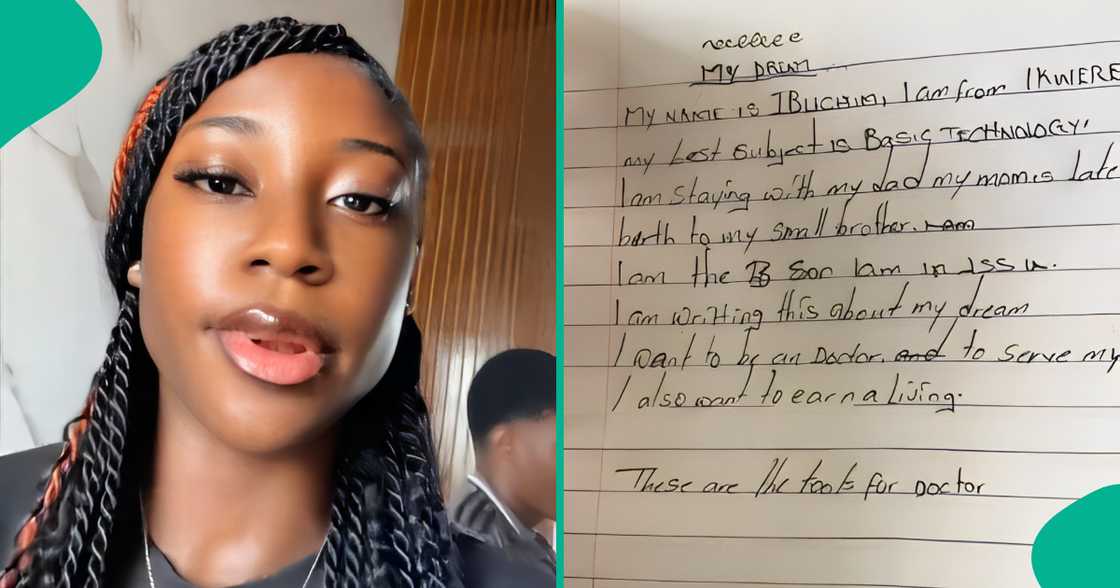 MY DREAM
MY NAME IS IBUCHIM, I am from IKWERE
my best subject is BASIC TECHNOLOGY,
I am staying with my dad my mom is late
barth to my small brother.
I am the Son I am in JSS
I am writting this about my dream
I want to be an Doctor. and to serve my
I also want to earn a living.
These are the tools for Doctor